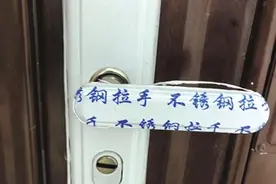 锈钢拉手 不锈钢拉
手 不锈钢拉手 不